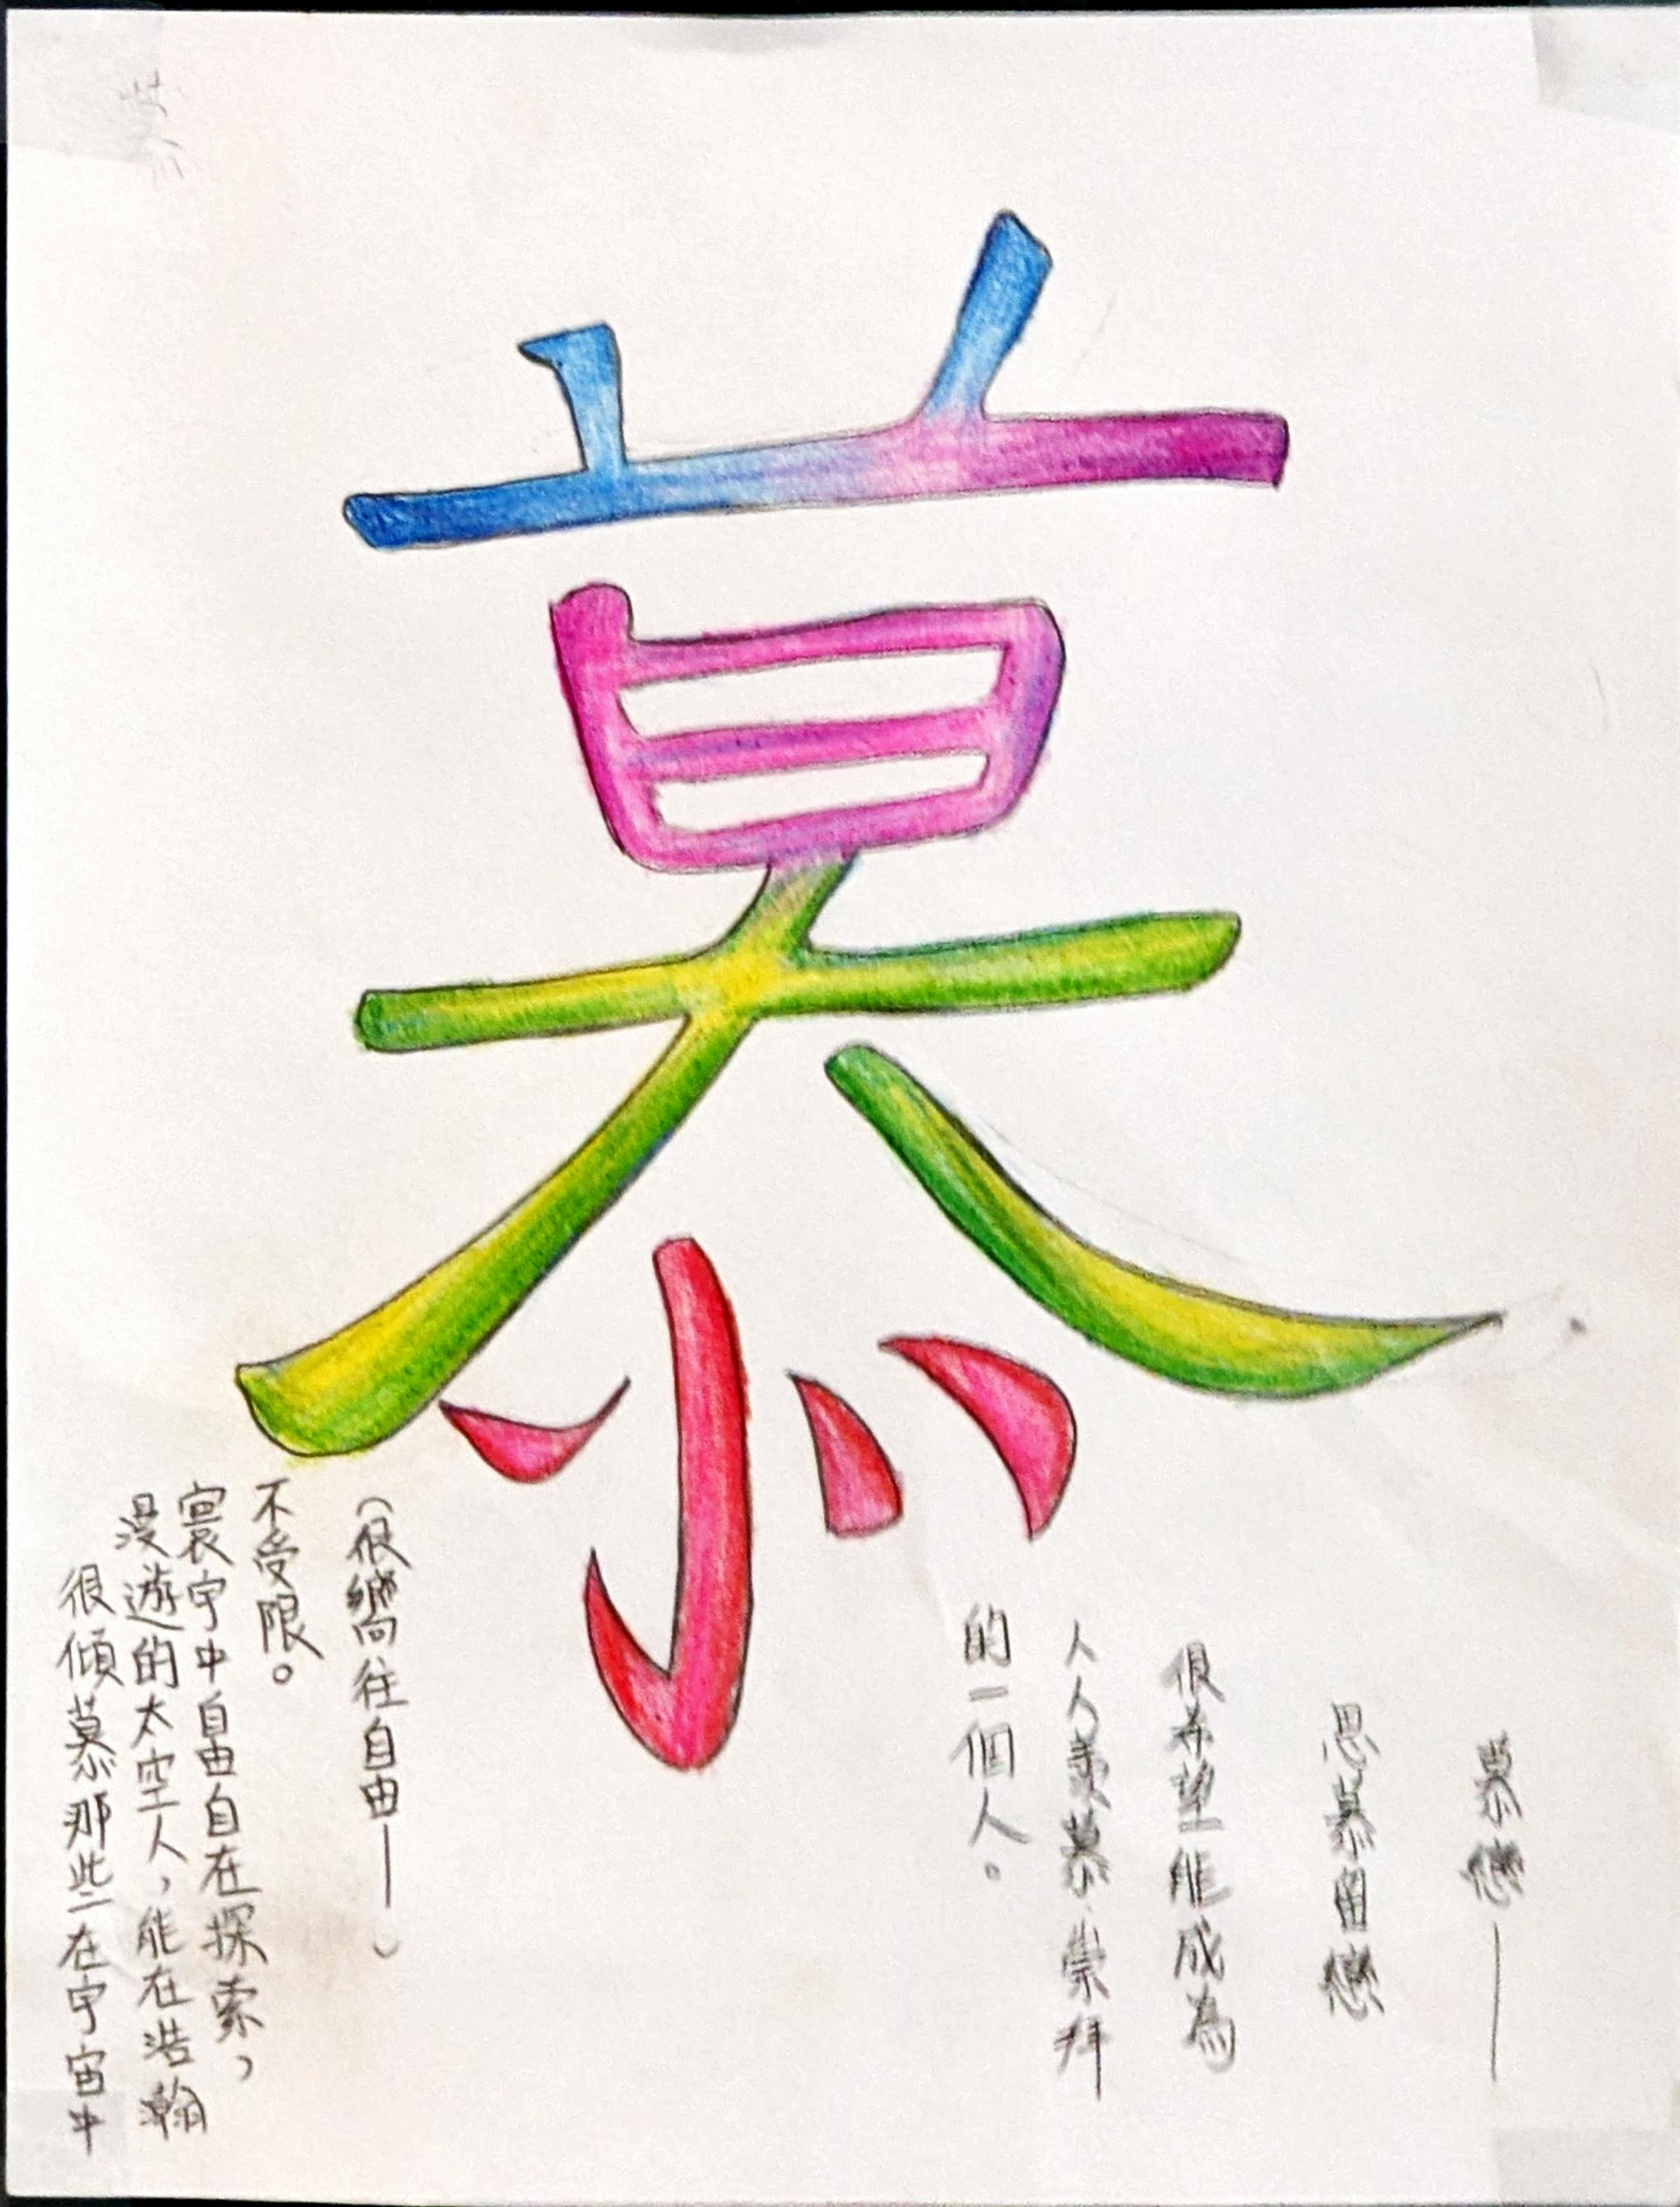 慕
慕
慕戀——
思慕留戀
很希望能成為
人人羨慕、崇拜
的一個人。
很傾慕那些在宇宙中
漫遊的太空人，能在浩瀚
寰宇中自由自在探索，
不受限。
（很嚮往自由——）